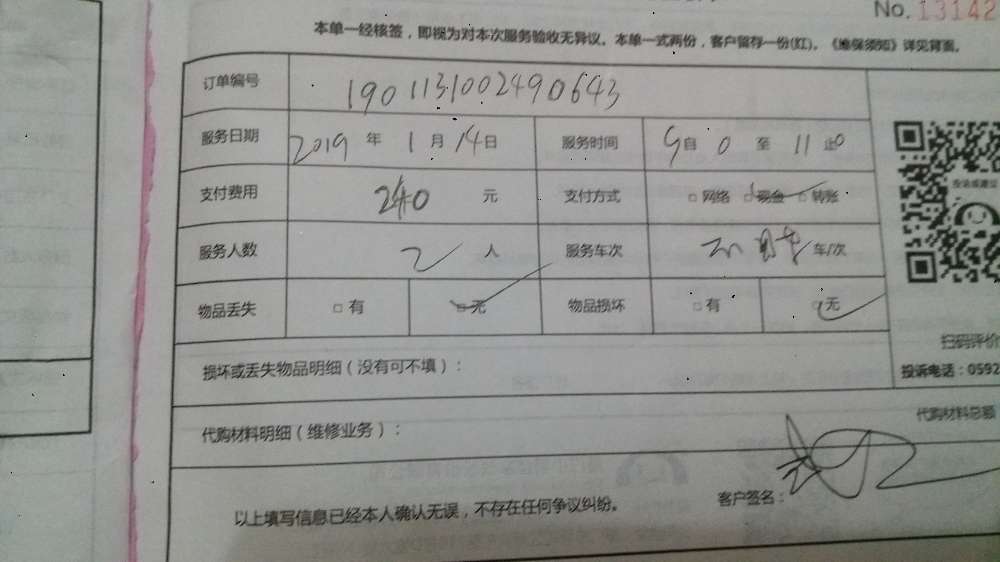 No. 13142
本单一经核签，即视为对本次服务验收无异议。本单一式两份，客户留存一份(红)。《维保须知》详见背面。
订单编号 1901131002490643
服务日期 2019 年 1 月 14 日 服务时间 9 自 0 至 11 止 0
支付费用 240 元 支付方式 □网络 □现金 □转账
服务人数 2 人 服务车次 车/次
物品丢失 □有 □无 物品损坏 □有 □无
投诉或建议
损坏或丢失物品明细（没有可不填）：
扫码评价
投诉电话：0592
代购材料明细（维修业务）：
代购材料总额
以上填写信息已经本人确认无误，不存在任何争议纠纷。
客户签名：